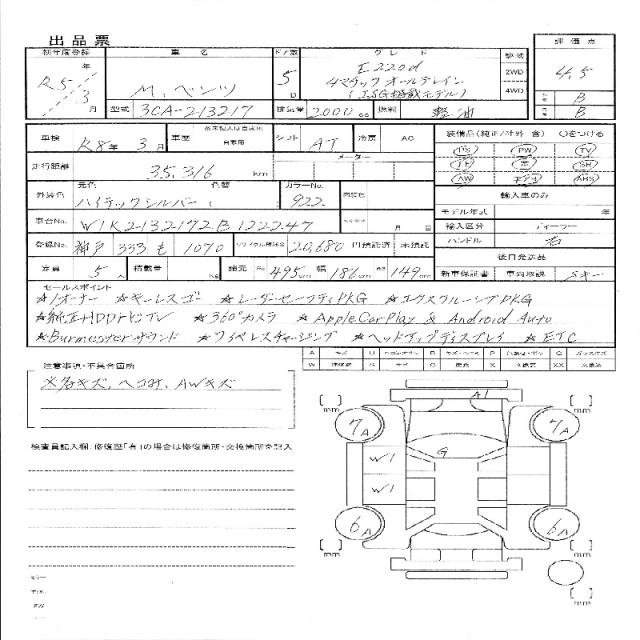 出品票
初年度登録 車名 ドア数 グレード 駆動 評価点
R5年3月 M,ベンツ 5D E220d 2WD 4.5
4マチック オールテレイン 4WD
B
型式 3CA-213217 排気量 2000cc 燃料 軽油 B
車検 R8年3月 車歴 自家用 シフト AT 冷房 AC 装備品(純正/社外 含) ○をつける
走行距離 35,316km メーター PS PW TV
AW ABS
外装色 元色 色替 カラーNo. 内装色 輸入車のみ
ハイテックシルバー( 922 モデル年式 年
車台No. W1K2132172B122247 月 日 輸入区分 ディーラー
登録No. 神戸 333 も 1070 リサイクル預託金 20,680円預託済 未預託 ハンドル 右
後日発送品
定員 5人 積載量 Kg 諸元 長495cm 幅186cm 高149cm 新車保証書 車両取説 Sキー
セールスポイント
☆1オーナー ☆キーレスゴー ☆レーダーセーフティPKG ☆エクスクルーシブPKG
☆純正HDDナビTV ☆360°カメラ ☆AppleCarPlay & Android Auto
☆Burmesterサウンド ☆ワイヤレスチャージング ☆ヘッドアップディスプレイ ☆ETC
注意事項・不具合箇所
※各キズ、ヘコミ、AWキズ
A1
mm mm
7A 7A
検査員記入欄:修復歴「有」の場合は修復箇所・交換箇所を記入
G
W1
W1
6A 6A
mm mm
mm